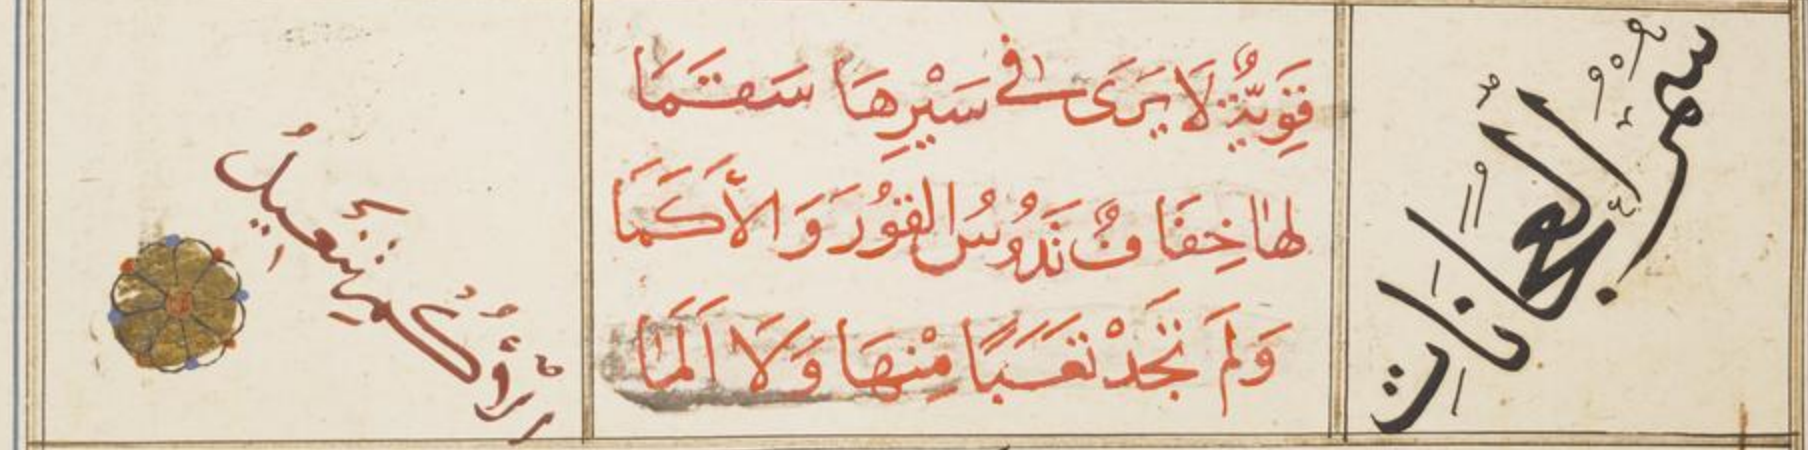 سُمْرُ العُجَايَاتِ
قَوِيَّةٌ لَا يَرَى فِي سَيْرِهَا سَقَمَا
لَهَا خِفَافٌ تَدُوسُ القُورَ وَالأَكَمَا
وَلَمْ تَجِدْ تَعَبًا مِنْهَا وَلَا اَلَمَا
تَنْعِيلُ